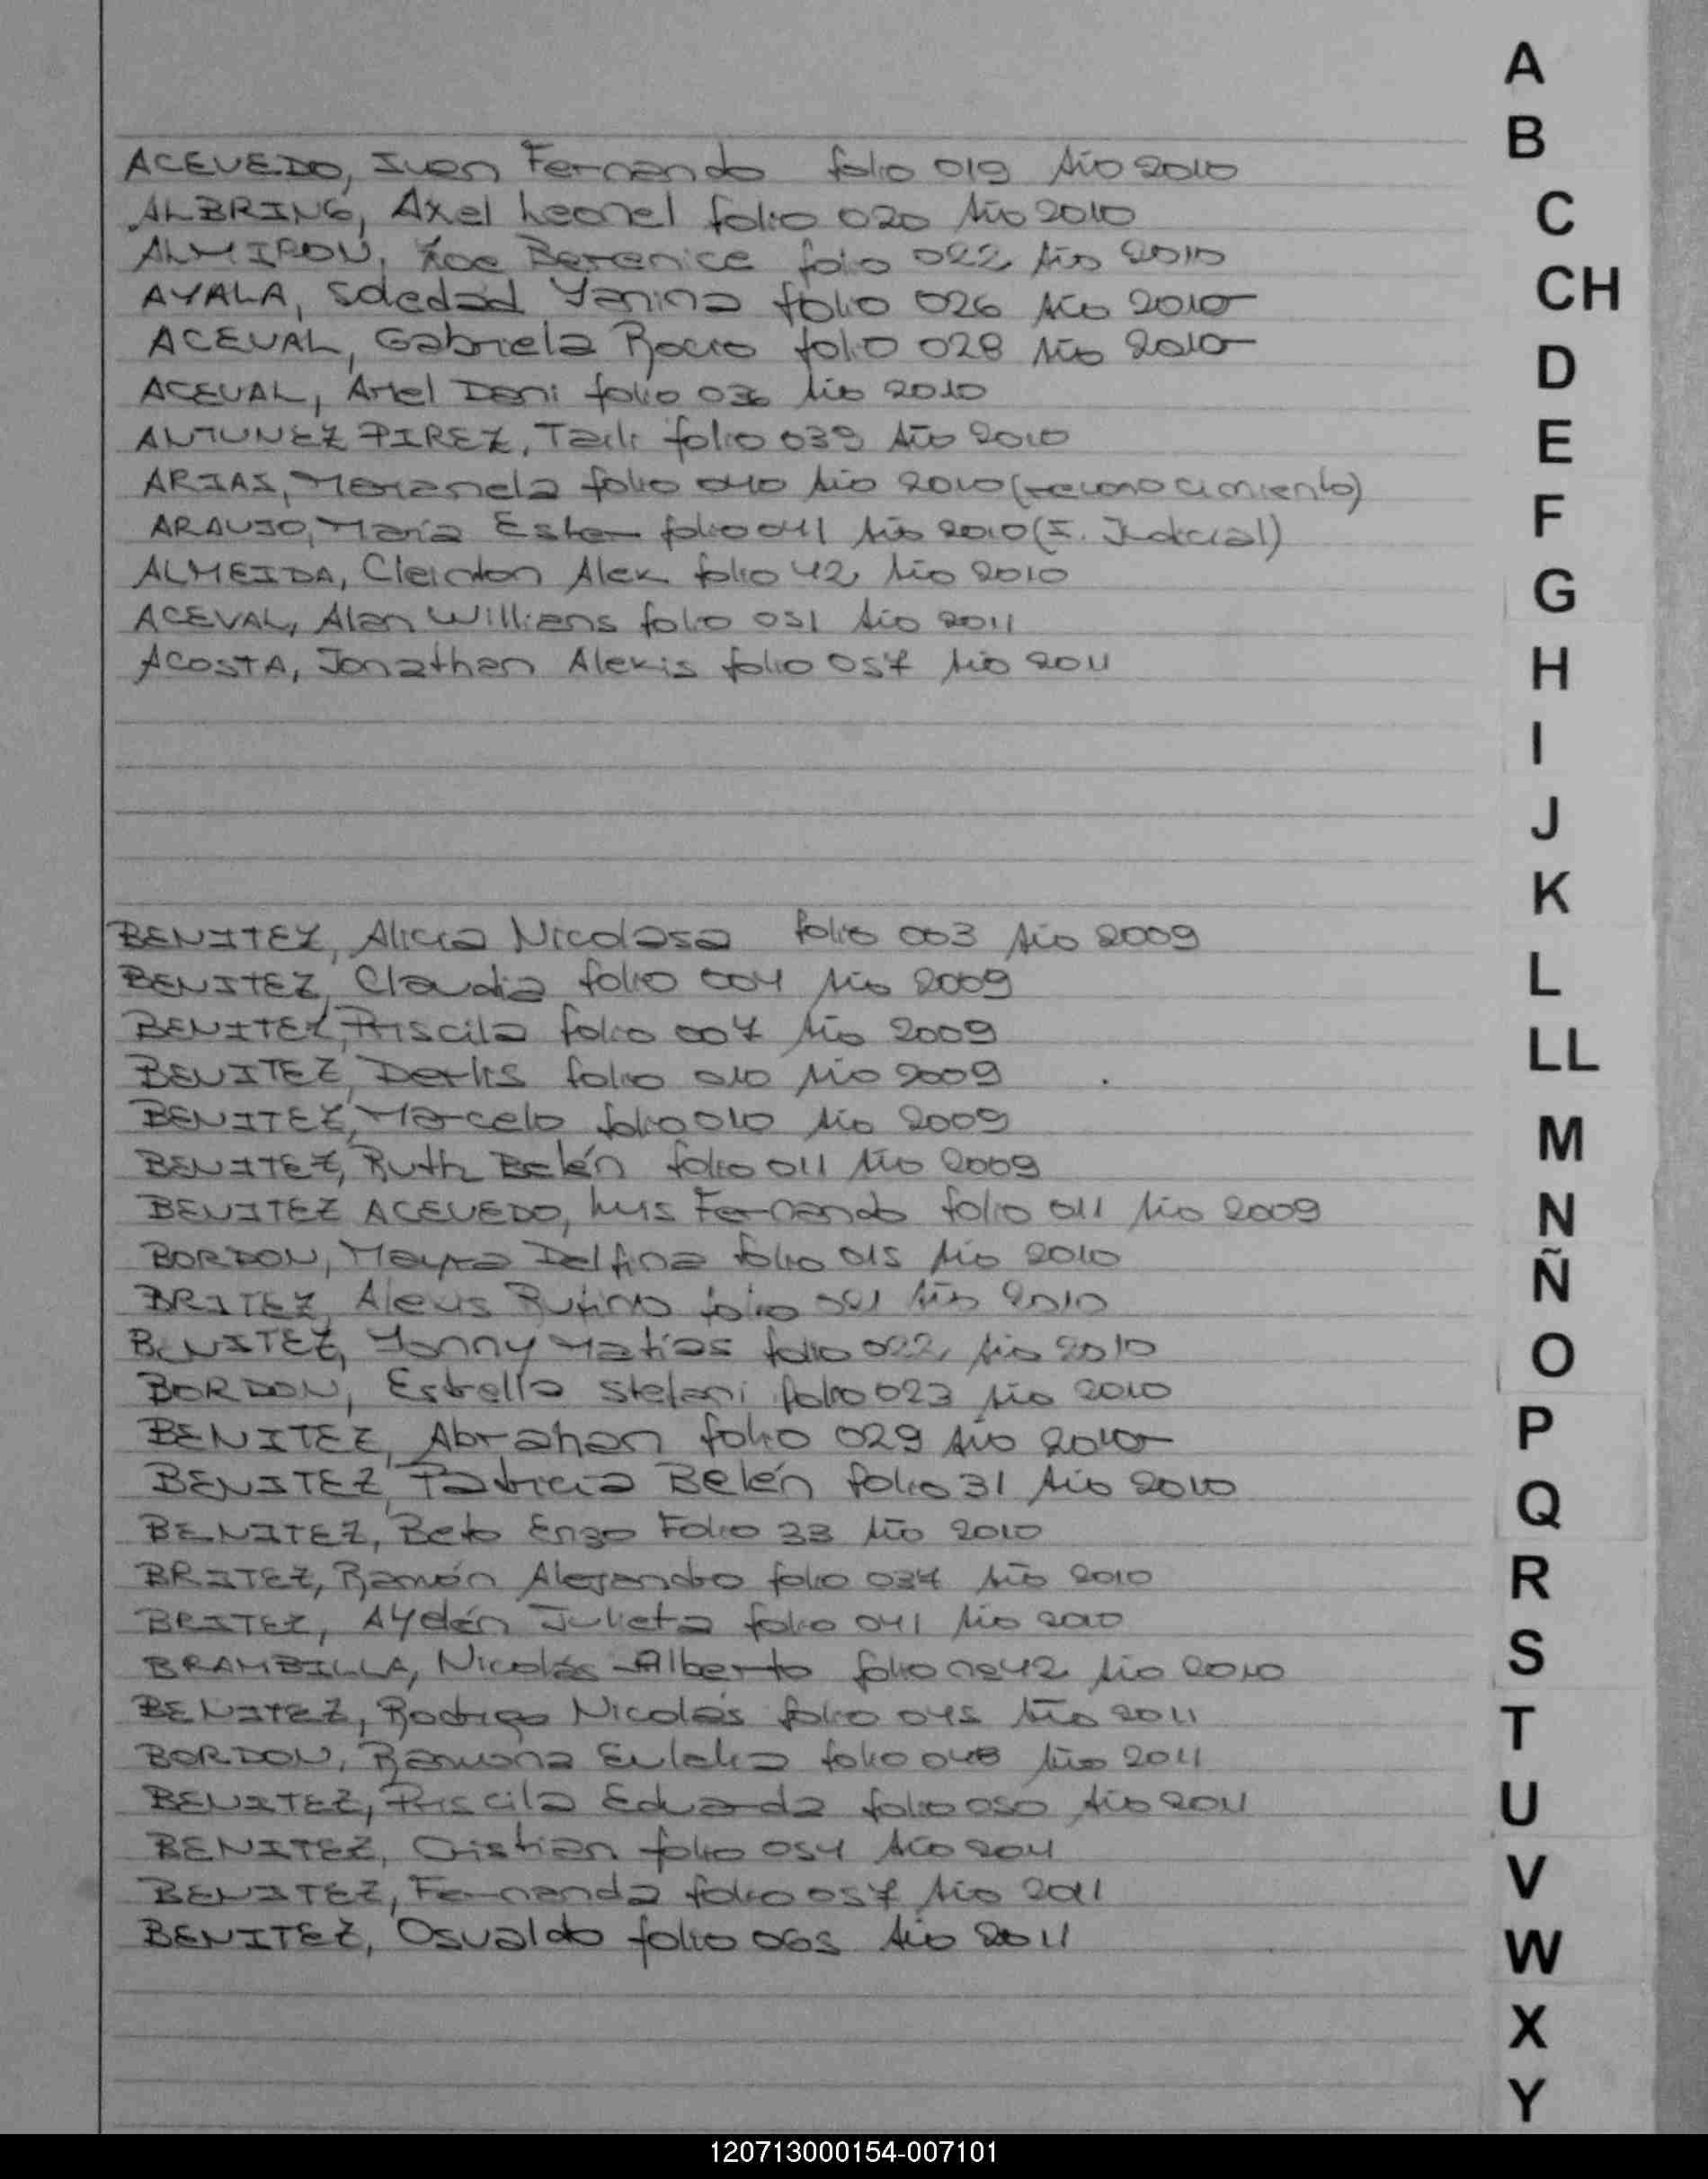 A
B
C
CH
D
E
F
G
H
I
J
K
L
LL
M
N
Ñ
O
P
Q
R
S
T
U
V
W
X
Y
ACEVEDO, Iven Fernando folio 019 Año 2010
ALBRING, Axel Leonel folio 020 Año 2010
ALMIRON, Zoe Berenice folio 022 Año 2010
AYALA, Soledad Yanina folio 026 Año 2010
ACEVAL, Gabriela Rocio folio 028 Año 2010
ACEVAL, Ariel Dani folio 036 Año 2010
ANTUNEZ PIREZ, folio 039 Año 2010
ARIAS, Marianela folio 040 Año 2010 (reconocimiento)
ARAUJO, María Ester folio 041 Año 2010 (I. Judicial)
ALMEIDA, Cleinton Alex folio 42 Año 2010
ACEVAL, Alan Willians folio 051 Año 2011
ACOSTA, Jonathan Alexis folio 057 Año 2011
BENITEZ, Alicia Nicolasa folio 003 Año 2009
BENITEZ, Claudia folio 004 Año 2009
BENITEZ, Priscila folio 007 Año 2009
BENITEZ, Derlis folio 010 Año 2009
BENITEZ, Marcelo folio 010 Año 2009
BENITEZ, Ruth Belén folio 011 Año 2009
BENITEZ ACEVEDO, Luis Fernando folio 011 Año 2009
BORDON, Mayra Delfina folio 015 Año 2010
BRITEZ, Alexis Rufino folio 021 Año 2010
BENITEZ, Yonny Matías folio 022 Año 2010
BORDON, Estrella Stefani folio 023 Año 2010
BENITEZ, Abrahan folio 029 Año 2010
BENITEZ, Patricia Belén folio 31 Año 2010
BENITEZ, Beto Enzo Folio 33 Año 2010
BRITEZ, Ramón Alejandro folio 037 Año 2010
BRITEZ, Aydén Julieta folio 041 Año 2010
BRAMBILLA, Nicolás Alberto folio nº42 Año 2010
BENITEZ, Rodrigo Nicolás folio 045 Año 2011
BORDON, Ramona Eulalia folio 048 Año 2011
BENITEZ, Priscila Eduarda folio 050 Año 2011
BENITEZ, Cristian folio 054 Año 2011
BENITEZ, Fernanda folio 057 Año 2011
BENITEZ, Osvaldo folio 065 Año 2011
120713000154-007101